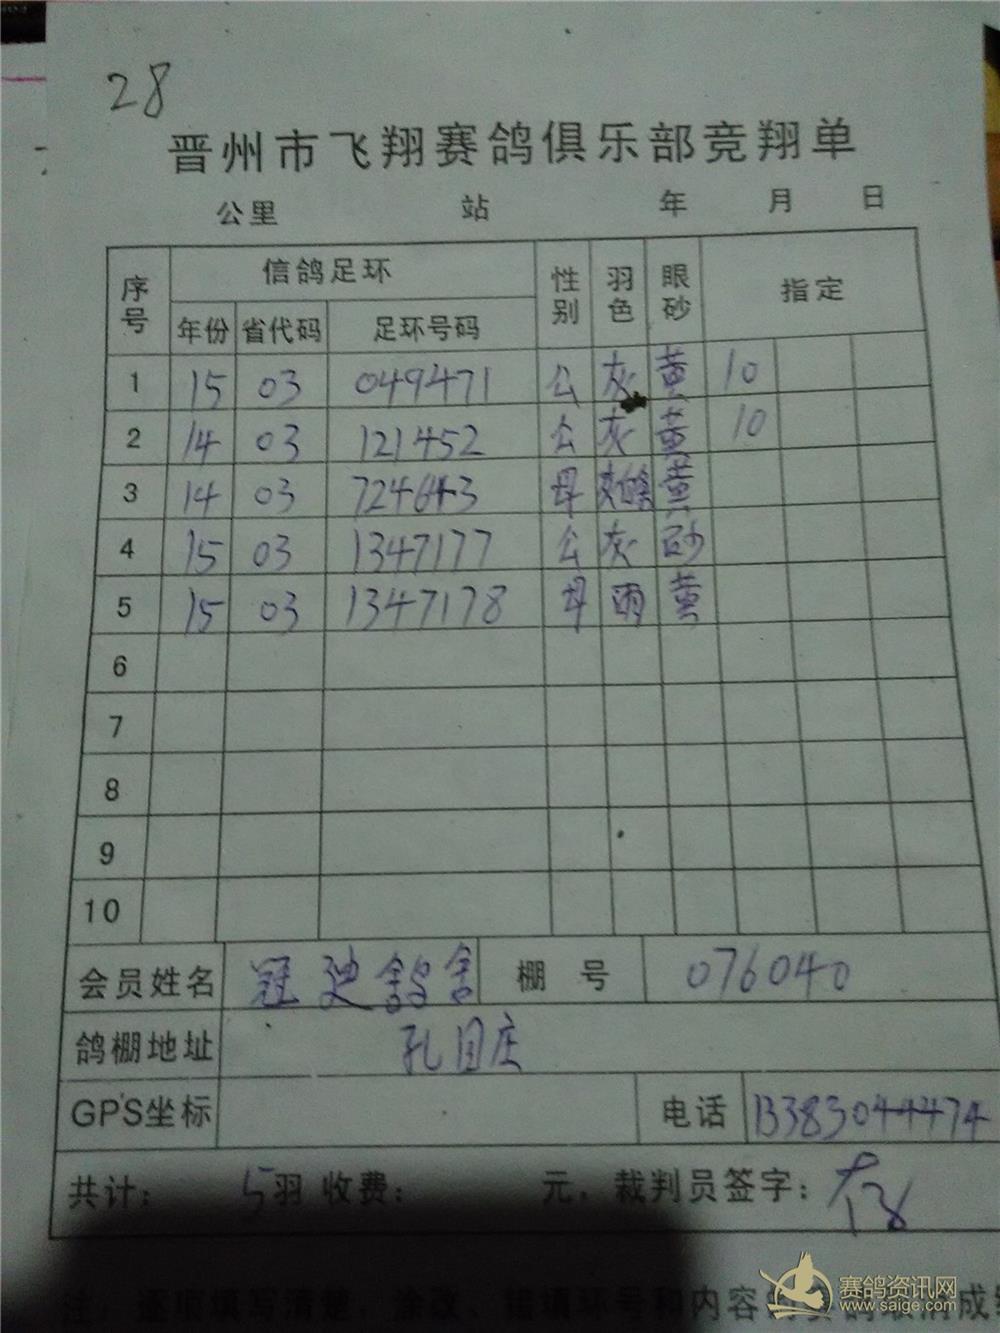 28
晋州市飞翔赛鸽俱乐部竞翔单
公里 站 年 月 日
序号 信鸽足环 性别 羽色 眼砂 指定
年份 省代码 足环号码
1 15 03 049471 公 灰 黄 10
2 14 03 121452 公 灰 黄 10
3 14 03 724643 母 黄
4 15 03 1347177 公 灰 砂
5 15 03 1347178 母 雨 黄
6
7
8
9
10
会员姓名 冠 鸽舍 棚号 076040
鸽棚地址 孔目庄
GPS坐标 电话 13383044474
共计: 5羽 收费: 元, 裁判员签字:
注: 填写清楚, 涂改、错填环号和内容
赛鸽资讯网
www.saige.com